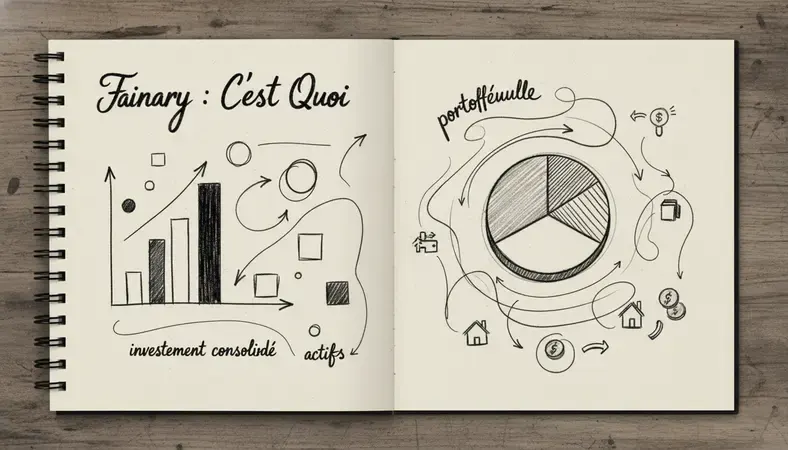 Fainary : C'est Quoi
investement consolidé
actifs
portofféuulle